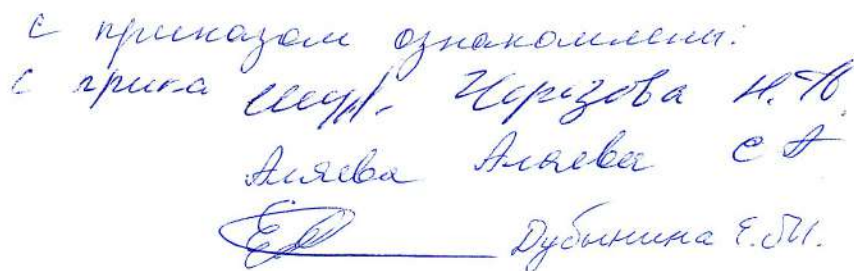 с приказом ознакомлены:
с прика Черезова Н.В.
Аляева Аляева С А
Дубынина Е.М.